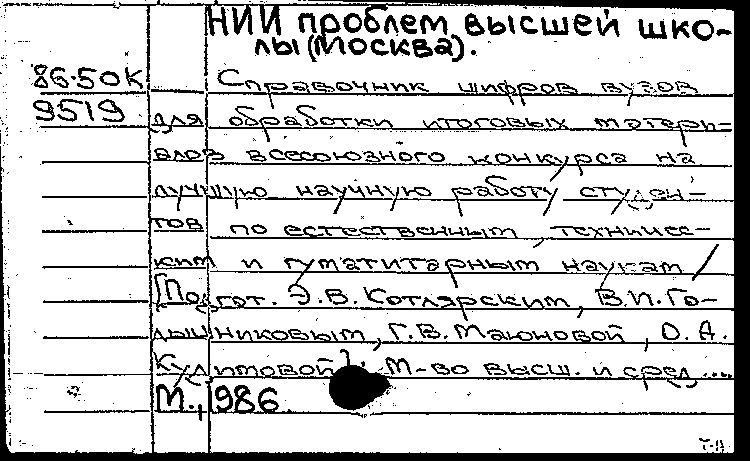 НИИ проблем высшей шко-
лы (Москва).
86-50К Справочник шифров вузов
9519 для обработки итоговых матери-
алов всесоюзного конкурса на
лучшую научную работу студен-
тов по естественным, техничес-
ким и гуманитарным наукам /
[Подгот. Э.В. Котлярским, В.И. Го-
лышниковым, Г.В. , О.А.
]; М-во высш. и сред....
М., 1986.